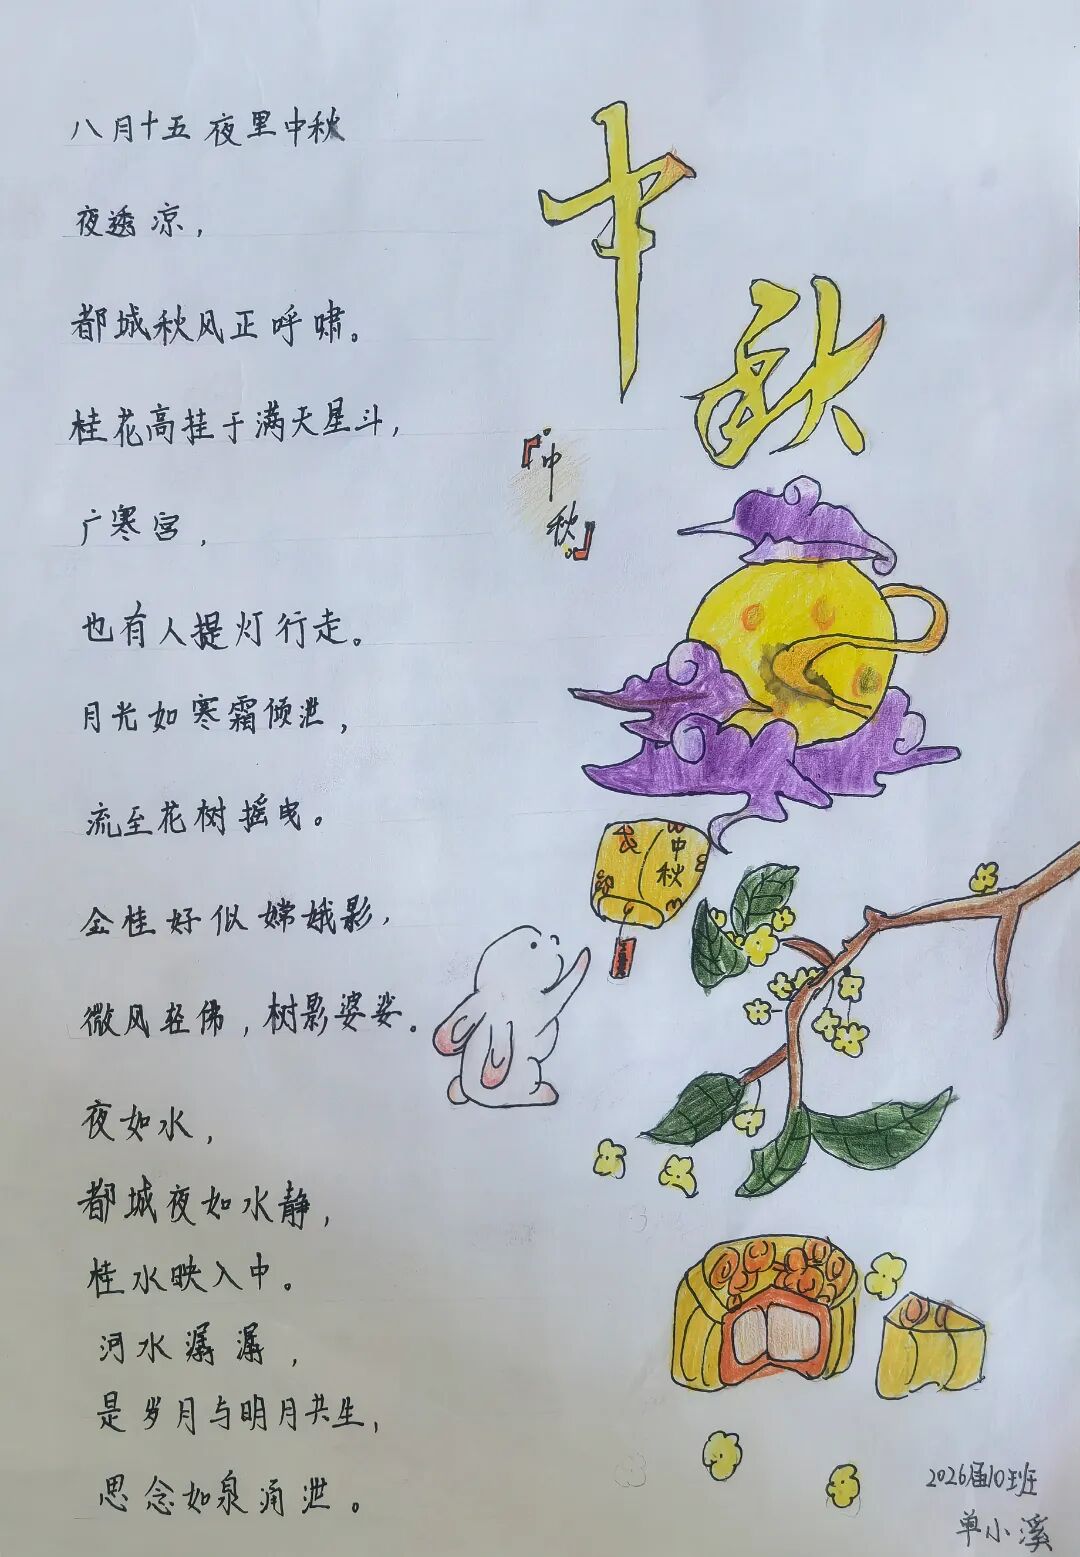 八月十五夜里中秋
夜透凉，
都城秋风正呼啸。
桂花高挂于满天星斗，
广寒宫，
也有人提灯行走。
月光如寒霜倾泄，
流至花树摇曳。
金桂好似嫦娥影，
微风轻佛，树影婆娑。
夜如水，
都城夜如水静，
桂水映入中。
河水潺潺，
是岁月与明月共生，
思念如泉涌泄。
中秋
『中秋』
中秋
2026届10班
单小溪